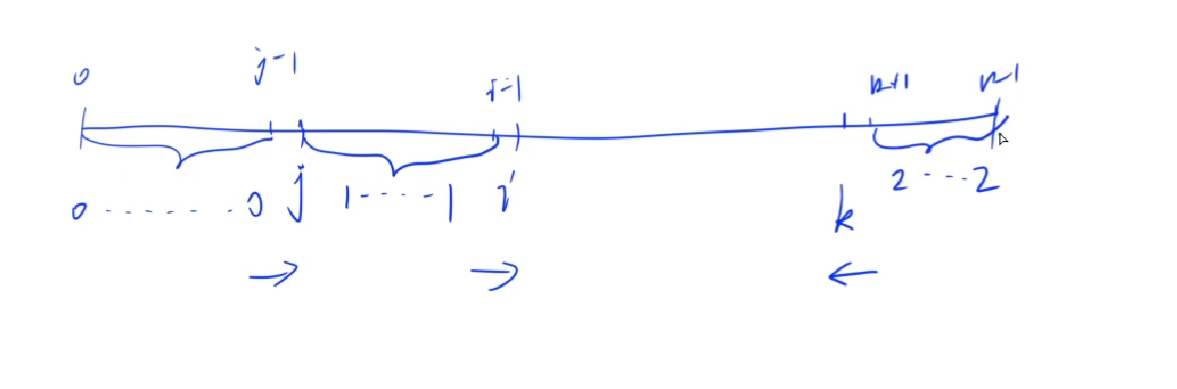 0 j-1 i-1 k+1 n-1
0 ------- 0 j 1-----1 i k 2 ---- 2
→ → ←